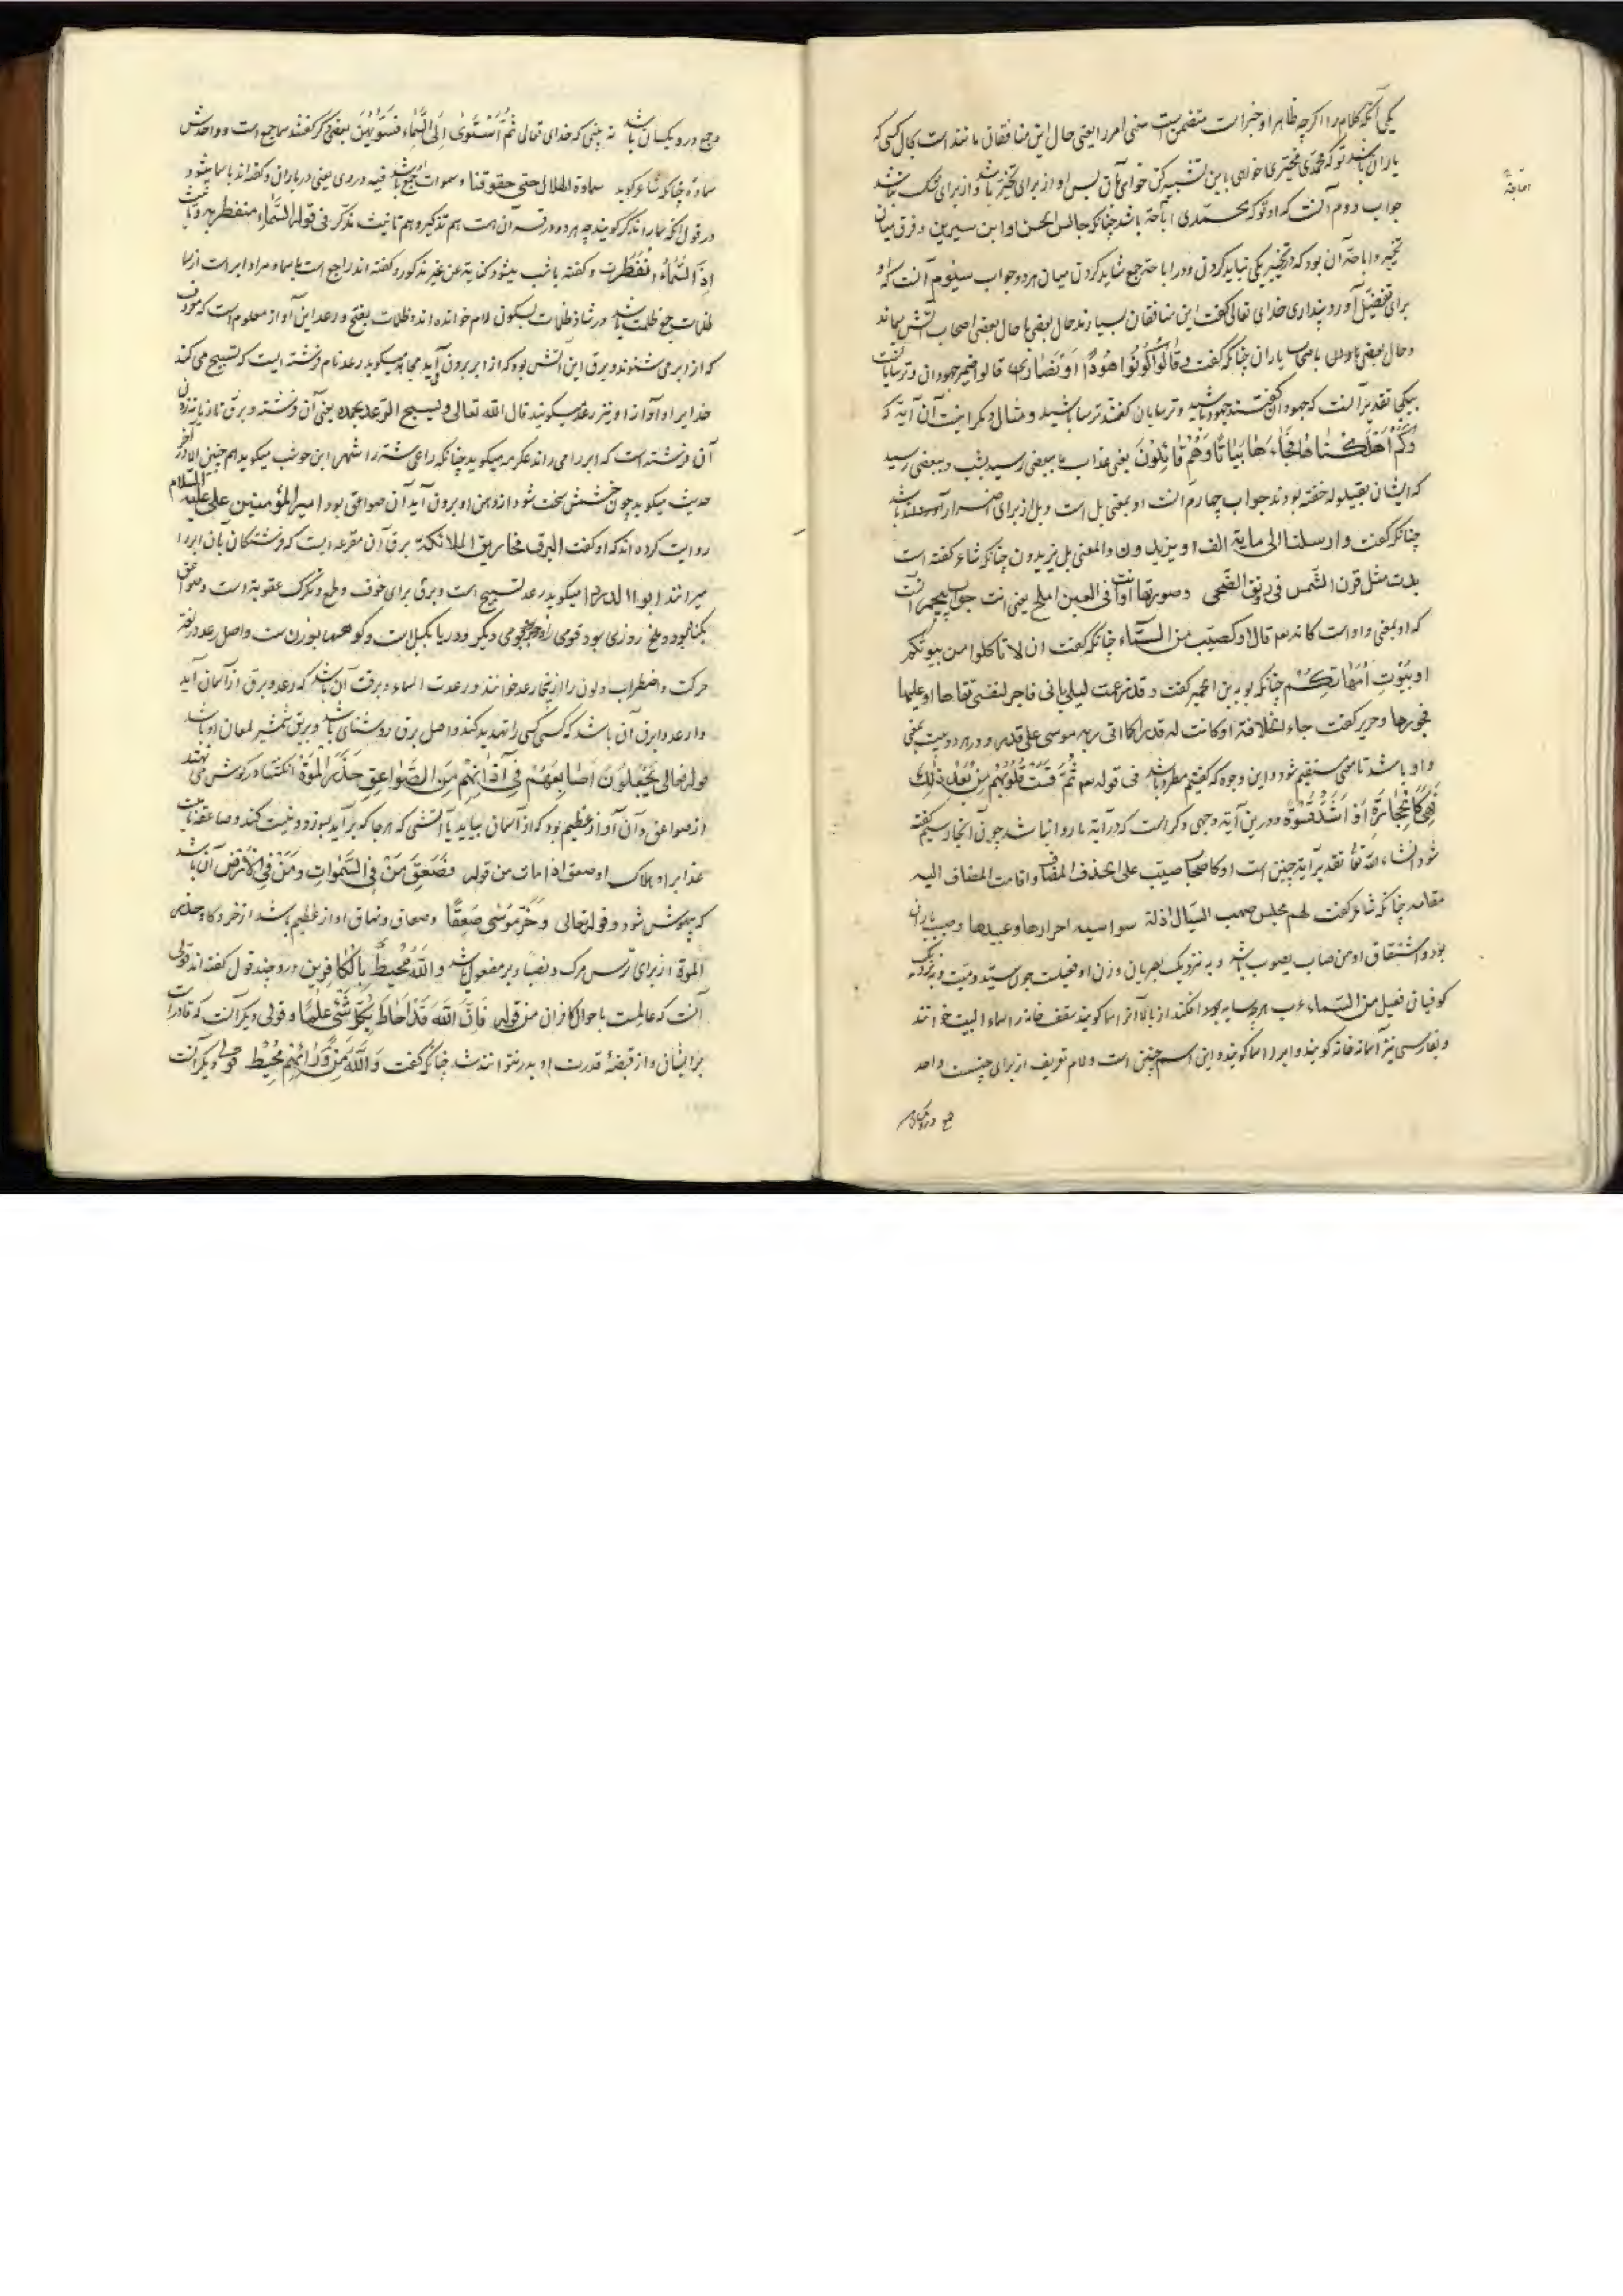 یکی آنکه کلام را اگرچه ظاهر او خبر است متضمن است معنی امر را یعنی حال این منافقان مانند است بحال کسی که
باران باشد تو که محمدی مخیری خواهی باین تشبیه کن خواهی بآن پس او از برای تخییر باشد و از برای شک نباشد
جواب دوم آنست که او تو که محمدی اباحة باشد چنانکه جالس الحسن او ابن سیرین و فرق میان
تخییر و اباحة آن بود که در تخییر یکی نباید کردن و در اباحة جمع شاید کردن میان هر دو جواب سیوم آنست که او
برای تفضیل آورد پنداری خدای تعالی گفت این منافقان بسیارند حال بعضی با حال بعضی اصحاب آتش بماند
و حال بعضی باصحاب باران چنانکه گفت و قالوا کونوا هودا او نصاری قالوا ضمیر جهودان و ترسایانست
بیکی تقدیر آنست که جهودان گفتند جهود باشید و ترسایان گفتند ترسا باشید و مثال دیگر اینست آن آیة که
وکم اهلکناها فجاءها بیاتا وهم قائلون یعنی عذاب ما ببعضی رسید بشب و ببعضی رسید
که ایشان بقیلوله خفته بودند جواب چهارم آنست او بمعنی بل است و بل از برای اضراب باشد
چنانکه گفت وارسلنا الی مایة الف او یزیدون والمعنی بل یزیدون چنانکه شاعر گفته است
بدت مثل قرن الشمس فی رونق الضحی وصورتها او انت فی العین املح یعنی انت جواب پنجم آنست
که او بمعنی واو است کانه قال وکصیب من السماء چنانکه گفت ان لا تاکلوا من بیوتکم
او بیوت امهاتکم چنانکه توبة بن الحمیر گفت وقد زعمت لیلی بانی فاجر لنفسی تقاها او علیها
فجورها وجریر گفت جاء الخلافة او کانت له قدرا کما اتی ربه موسی علی قدر و در هر دو بیت بمعنی
واو باشد تا معنی مستقیم شود و این وجوه که گفتیم مطرد باشد فی قوله ثم قست قلوبکم من بعد ذلک
فهی کالحجارة او اشد قسوة و درین آیة وجهی دگر است که در آیة ما روا نباشد چون آنجا رسیم گفته
شود انشاء الله تعالی تقدیر آیة چنین است او کاصحاب صیب علی حذف المضاف واقامت المضاف الیه
مقامه چنانکه شاعر گفت لهم مجلس صهب السبال اذلة سواسیه احرارها وعبیدها وصیب باران
بود و اشتقاق او من صاب یصوب باشد و به نزدیک بصریان وزن او فیعل است چون سید و میت و بنزدیک
کوفیان فعیل من السماء عرب هر چه سایه برو افکند از بالا آنرا سما گویند سقف خانه را سماء البیت خوانند
و بفارسی نیز آسمانه خانه گویند و ابر را سما گویند و این اسم جنس است و لام تعریف از برای جنس است واحد
و جمع درو یکسان باشد نه بینی که خدای تعالی ثم استوی الی السماء فسویهن بعضی دگر گفتند سما جمع است و واحدش
سماوة چنانکه شاعر گوید سماوة الهلال حتی حقوقنا و سموات جمع باشد فیه در وی یعنی در باران و گفته اند با سما میشود
در قول آنکه سما را مذکر گویند چه هر دو در قرآن هست هم تذکیر و هم تانیث مذکر فی قوله السماء منفطر به و تانیث
اذا السماء انفطرت و گفته با شب میشود کنایة عن غیر مذکور و گفته اند راجع است با سما و مراد ابر است از سما
ظلمات جمع ظلمت باشد و در شاذ ظلمات بسکون لام خوانده اند و ظلمات بفتح و رعد این آواز معلوم است که
که از ابر می شنوند و برق این آتش بود که از ابر برون آید مجاهد میگوید رعد نام فرشته ایست که تسبیح می کند
خدایرا و آواز او نیز رعد میگویند قال الله تعالی ویسبح الرعد بحمده یعنی آن فرشته و برق تازیانه زدن
آن فرشته است که ابر را می راند عکرمه میگوید چنانکه راعی شتر را شهر بن حوشب میگوید هم چنین الا در آخر
حدیث میگوید چون خشمش سخت شود از دهن او برون آید آن صواعق بود امیر المؤمنین علی علیه السلام
روایت کرده اند که او گفت البرق مخاریق الملائکة برق آن مقرعه ایست که فرشتگان بآن ابر را
میرانند ابو الدردا میگوید رعد تسبیح است و برق برای خوف و طمع و تگرگ عقوبة است و صواعق
بگناه بود و ملخ روزی بود قومی را و زجر قومی دیگر و دریا بکیل است و کوهها بوزنست و اصل رعد در لغة
حرکت و اضطراب بود و ازینجا رعد خوانند و رعدت السماء و برقت آن باشد که رعد و برق از آسمان آید
و ارعد و ابرق آن باشد که کسی کسی را تهدید کند و اصل برق روشنای باشد و بریق شمشیر لمعان او باشد
قوله تعالی یجعلون اصابعهم فی اذانهم من الصواعق حذر الموت انگشتها در گوش می نهند
از صواعق و آن آواز عظیم بود که از آسمان بیاید یا آتشی که هر جا که برآید بسوزد و نیست کند و صاعقه نامیست
عذابرا و هلاک او صعق اذا مات من قوله فصعق من فی السموات ومن فی الارض آن باشد
که بیهوش شود و قوله تعالی وخر موسی صعقا وصعاق ونهاق آواز عظیم باشد از خر و گاو حذر
الموت از برای ترس مرگ و نصبا بر مفعول له باشد والله محیط بالکافرین درو چند قول گفته اند قولی
آنست که عالمست باحوال کافران من قوله فان الله قد احاط بکل شیء علما و قولی دیگر آنست که قادر است
بر ایشان و از قبضهٔ قدرت او بدر نتوانند شد چنانکه گفت والله من ورائهم محیط قولی دیگر آنست